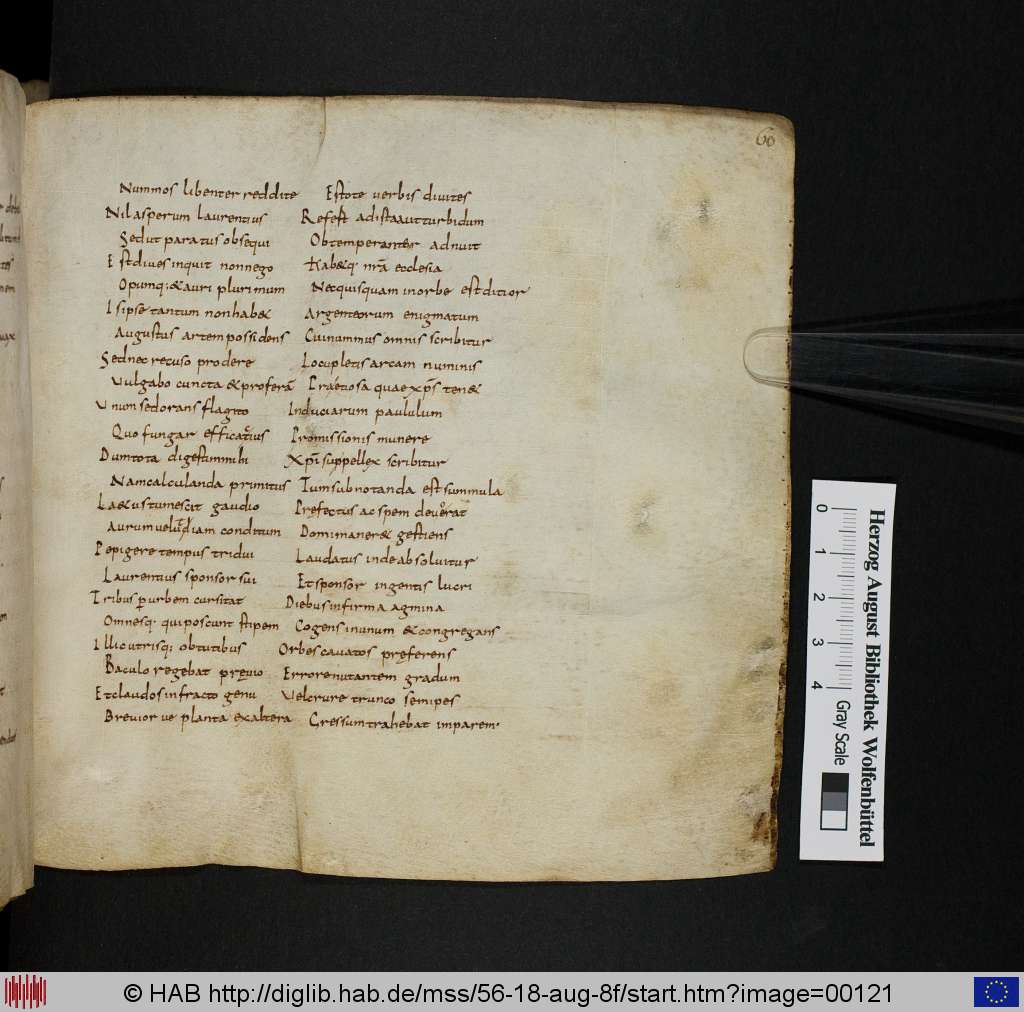 60
Nummos libenter reddite Estote verbis divites
Nil asperum laurentius Refest adistaaut turbidum
Sedut paratus obsequi Obtemperanter adnuit
Est dives inquit nonnego Habe&q: nr̄a ecclesia
Opumq; & auri plurimum Necquisquam inorbe est ditior
Is ipse tantum nonhabe& Argenteorum enigmatum
Augustus artem possidens Cui nummus omnis scribitur
Sednec recuso prodere Locupletis arcam numinis
Vulgabo cuncta & proferā Praetiosa quae xp̄s ten&
Vnum sedorans flagito Induciarum paululum
Quo fungar efficatius Promissionis munere
Dumtota digestimmihi Xp̄i suppellex scribitur
Namcalculanda primitus Tumsubnotanda est summula
La&us tumescit gaudio Prefectus ac spem devorat
Aurum velut iam conditum Domi maner& gestiens
Pepigere tempus tridui Laudatus inde absolvitur
Laurentius sponsor sui Et sponsor ingentis lucri
Tribus p urbem cursitat Diebus infirma agmina
Omnesq; qui poscunt stipem Cogens inunum & congregans
Illic utrisq; obtutibus Orbes cavatos pręferens
Baculo regebat pręvio Errore nutantem gradum
Et claudos infracto genu Vel crure trunco semipes
Brevior ve planta ex altera Gressum trahebat imparem.
Herzog August Bibliothek Wolfenbüttel
0 1 2 3 4 Gray Scale
© HAB http://diglib.hab.de/mss/56-18-aug-8f/start.htm?image=00121